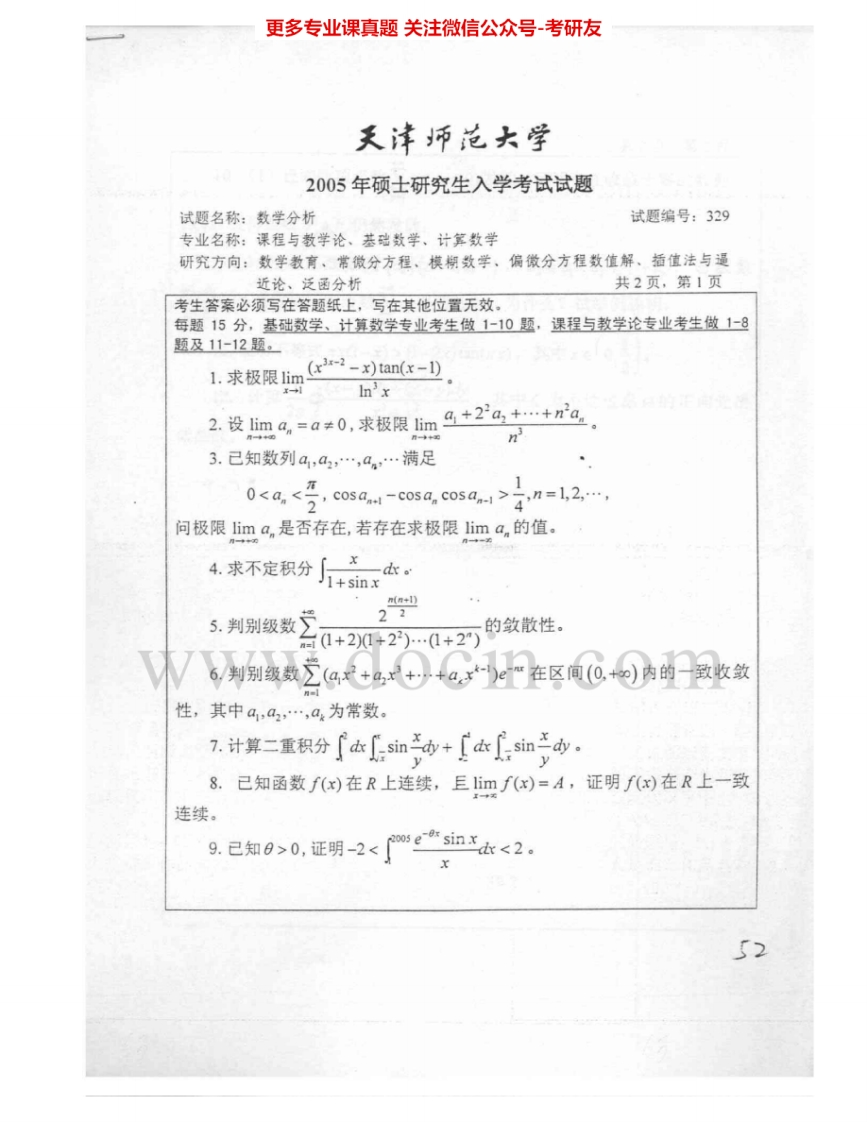 更多专业课真题 关注微信公众号-考研友
天津师范大学
2005 年硕士研究生入学考试试题
试题名称：数学分析 试题编号：329
专业名称：课程与教学论、基础数学、计算数学
研究方向：数学教育、常微分方程、模糊数学、偏微分方程数值解、插值法与逼
近论、泛函分析 共 2 页，第 1 页
考生答案必须写在答题纸上，写在其他位置无效。
每题 15 分，基础数学、计算数学专业考生做 1-10 题，课程与教学论专业考生做 1-8
题及 11-12 题。
1. 求极限 $\lim_{x\to1}\frac{(x^{3x-2}-x)\tan(x-1)}{\ln^3 x}$。
2. 设 $\lim_{n\to+\infty} a_n = a \neq 0$, 求极限 $\lim_{n\to+\infty}\frac{a_1+2^2a_2+\cdots+n^2a_n}{n^3}$。
3. 已知数列 $a_1,a_2,\cdots,a_n,\cdots$ 满足
$0<a_n<\frac{\pi}{2}$, $\cos a_{n+1}-\cos a_n\cos a_{n-1}>\frac{1}{4}, n=1,2,\cdots,$
问极限 $\lim_{n\to+\infty} a_n$ 是否存在, 若存在求极限 $\lim_{n\to+\infty} a_n$ 的值。
4. 求不定积分 $\int\frac{x}{1+\sin x}dx$。
5. 判别级数 $\sum_{n=1}^{+\infty}\frac{2^{\frac{n(n+1)}{2}}}{(1+2)(1+2^2)\cdots(1+2^n)}$ 的敛散性。
6. 判别级数 $\sum_{n=1}^{+\infty}(a_1x^2+a_2x^3+\cdots+a_kx^{k-1})e^{-nx}$ 在区间 $(0,+\infty)$ 内的一致收敛
性，其中 $a_1,a_2,\cdots,a_k$ 为常数。
7. 计算二重积分 $\int_1^2 dx\int_{\sqrt{x}}^x \sin\frac{x}{y}dy+\int_2^4 dx\int_{\sqrt{x}}^2 \sin\frac{x}{y}dy$。
8. 已知函数 $f(x)$ 在 $R$ 上连续，且 $\lim_{x\to\infty} f(x)=A$，证明 $f(x)$ 在 $R$ 上一致
连续。
9. 已知 $\theta>0$, 证明 $-2<\int_1^{2005}\frac{e^{-\theta x}\sin x}{x}dx<2$。
www.docin.com
52